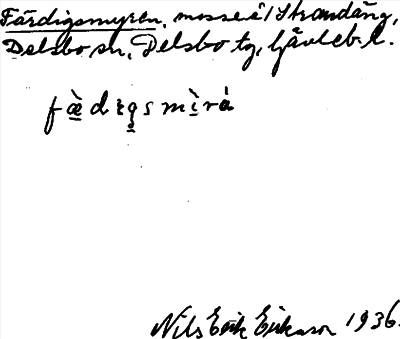 Färdigsmyren, mosse å l Strandäng,
Delsbo sn, Delsbo tg, Gävleb. l.
fæ̀dıgsmìrá
Nils Erik Erikson 1936.